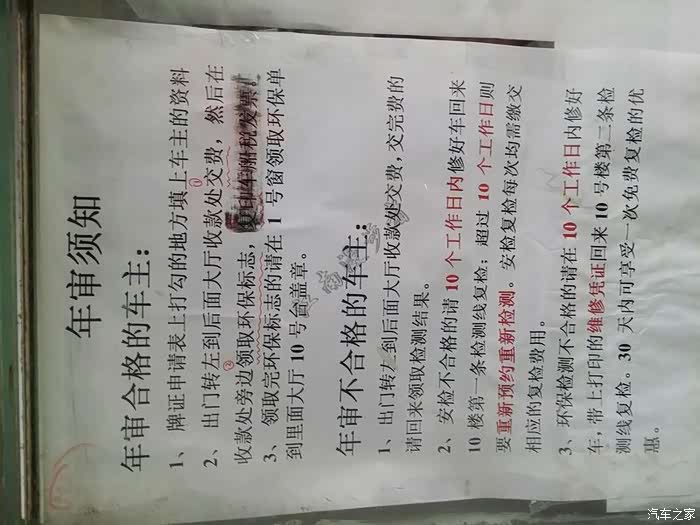 年审须知
年审合格的车主：
1、牌证申请表上打勾的地方填上车主的资料
2、出门转左到后面大厅收款处交费，然后在
收款处旁边领取环保标志，
3、领取完环保标志的请在 1 号窗领取环保单
到里面大厅 10 号台盖章。
年审不合格的车主：
1、出门转左到后面大厅收款处交费，交完费的
请回来领取检测结果。
2、安检不合格的请 10 个工作日内修好车回来
10 楼第一条检测线复检；超过 10 个工作日则
要重新预约重新检测。安检复检每次均需缴交
相应的复检费用。
3、环保检测不合格的请在 10 个工作日内修好
车，带上打印的维修凭证回来 10 号楼第二条检
测线复检。30 天内可享受一次免费复检的优
惠。
汽车之家